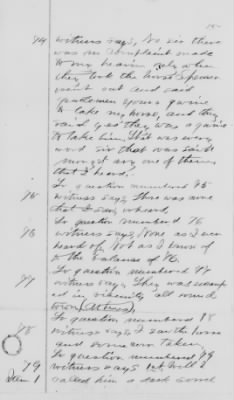 74 witness says, No sir there
was no complaint made
to my hearing only when
they took the horse Spencer
went out and said
gentlemen youre a goine
to take my horse, and they
said yes they was a goine
to take him. That was every
word sir that was said
amongst any one of them
that I heard.
To question numbered 75
75 witness says, there was none
that I saw or heard.
To question numbered 76
76 witness says, None as I ever
heard of. Not as I know of
to the balance of 76.
To question numbered 77
77 witness says, They was camp
ed in vicinity all round
town (Athens)
To question numbered 78
78 witness says I saw the horse
and some corn taken
To question numbered 79
79 witness says
called him a dark sorrel